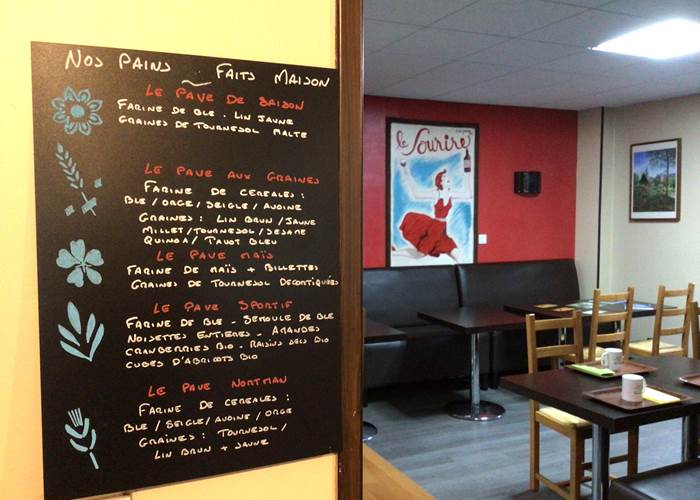 Nos Pains ~ Faits Maison
Le Pave de Saison
Farine de ble . Lin jaune
Graines de Tournesol Malte
Le Pave aux Graines
Farine de cereales :
Ble / orge / Seigle / Avoine
Graines : Lin brun / jaune
Millet / Tournesol / Sesame
Quinoa / Pavot bleu
Le Pave Maïs
Farine de Maïs + Billettes
Graines de Tournesol decortiquées
Le Pave Sportif
Farine de ble - Semoule de ble
Noisettes Entieres - Amandes
Cranberries Bio - Raisins secs Bio
Cubes d'abricots Bio
Le Pave Nortman
Farine de cereales :
Ble / Seigle / Avoine / Orge
Graines : Tournesol /
Lin brun + jaune
le Sourire